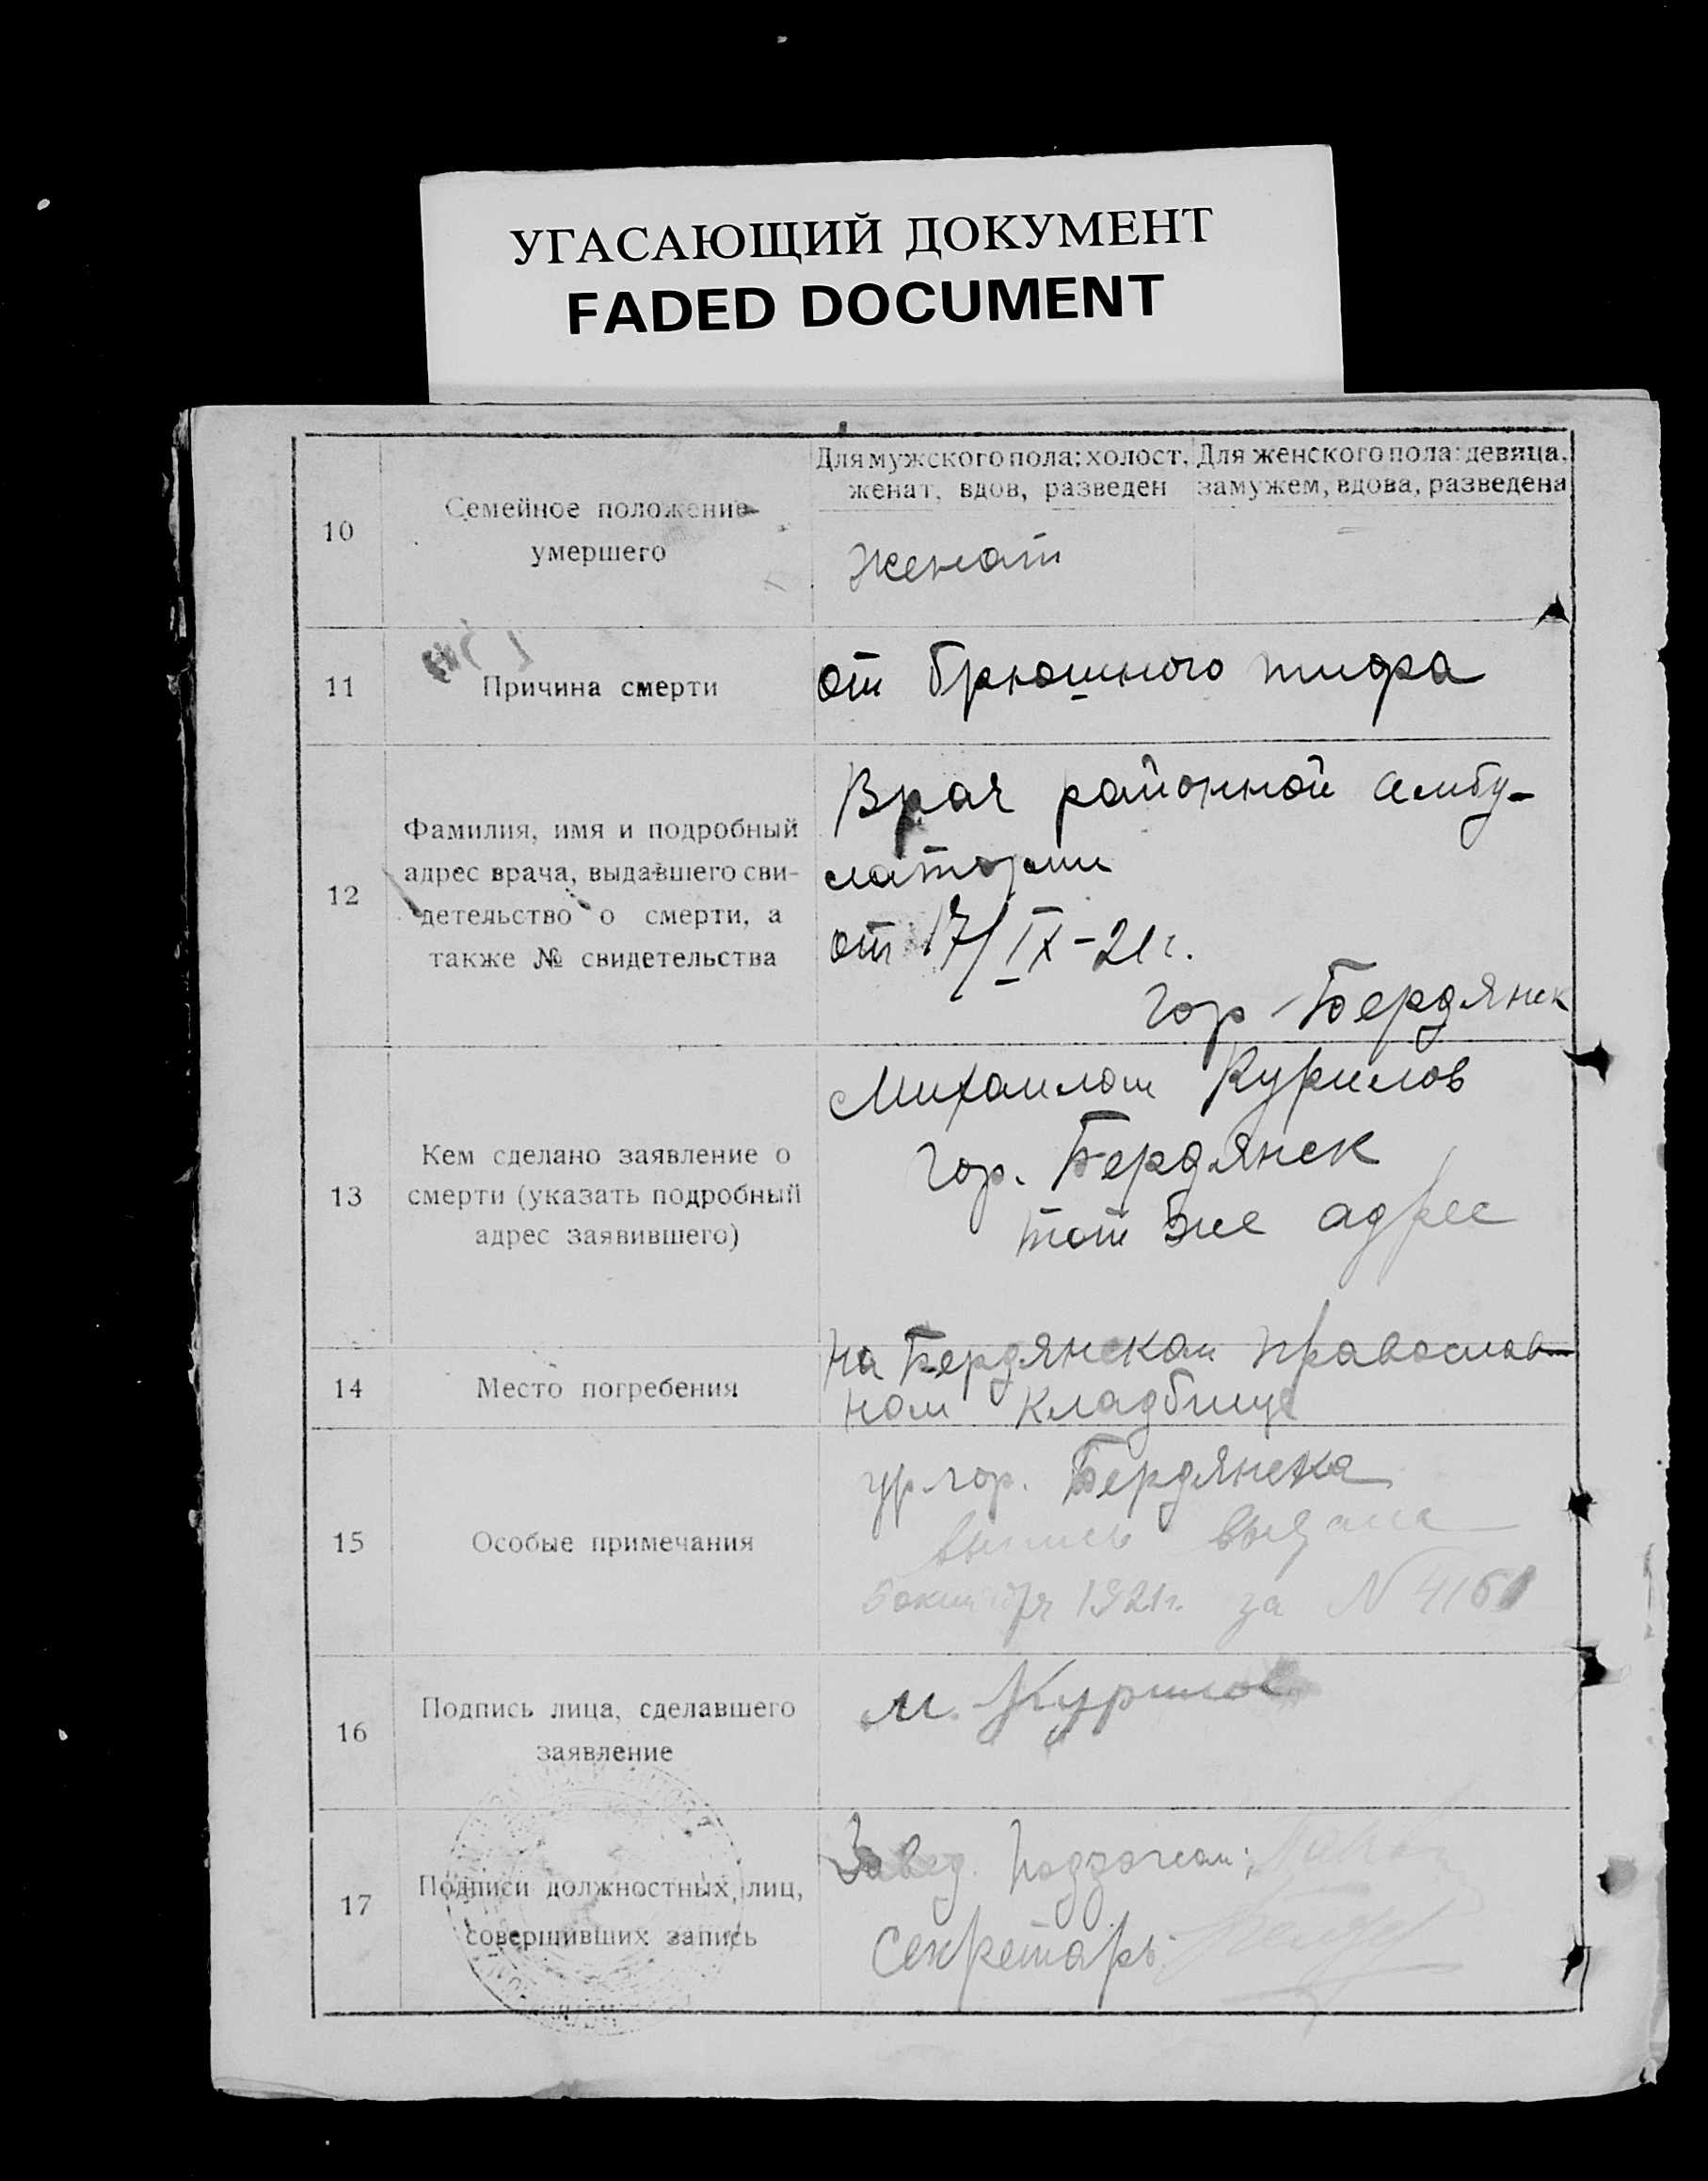 УГАСАЮЩИЙ ДОКУМЕНТ
FADED DOCUMENT
10
Семейное положение
умершего
Для мужского пола: холост,
женат, вдов, разведен
Для женского пола: девица,
замужем, вдова, разведена
женат
11
Причина смерти
от брюшного тифа
12
Фамилия, имя и подробный
адрес врача, выдавшего сви-
детельство о смерти, а
также № свидетельства
Врач районной амбу-
латории
от 17/IX-21г.
гор Бердянск
13
Кем сделано заявление о
смерти (указать подробный
адрес заявившего)
Михаилом Курилов
гор. Бердянск
тот же адрес
14
Место погребения
на Бердянском православ
ном кладбище
15
Особые примечания
ур. гор. Бердянска
выпись выдана
5 октября 1921г. за N 4161
16
Подпись лица, сделавшего
заявление
М. Курилов
17
Подписи должностных лиц,
совершивших запись
Завед. Подзагсом:
Секретарь: